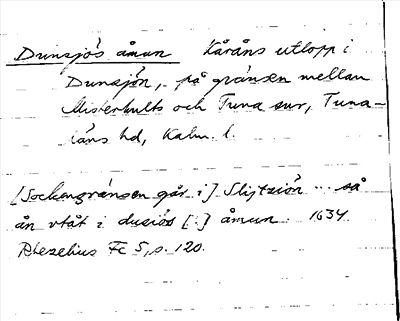 Dunsjös åmun Kåråns utlopp i
Dunsjön, på gränsen mellan
Misterhults och Tuna snr, Tuna-
läns hd, Kalm. l.
[Sockengränsen går i] Slijtziön ... så
ån vtåt i dusiös [:] åmun. 1634
Rhezelius Fc 5, s. 120.